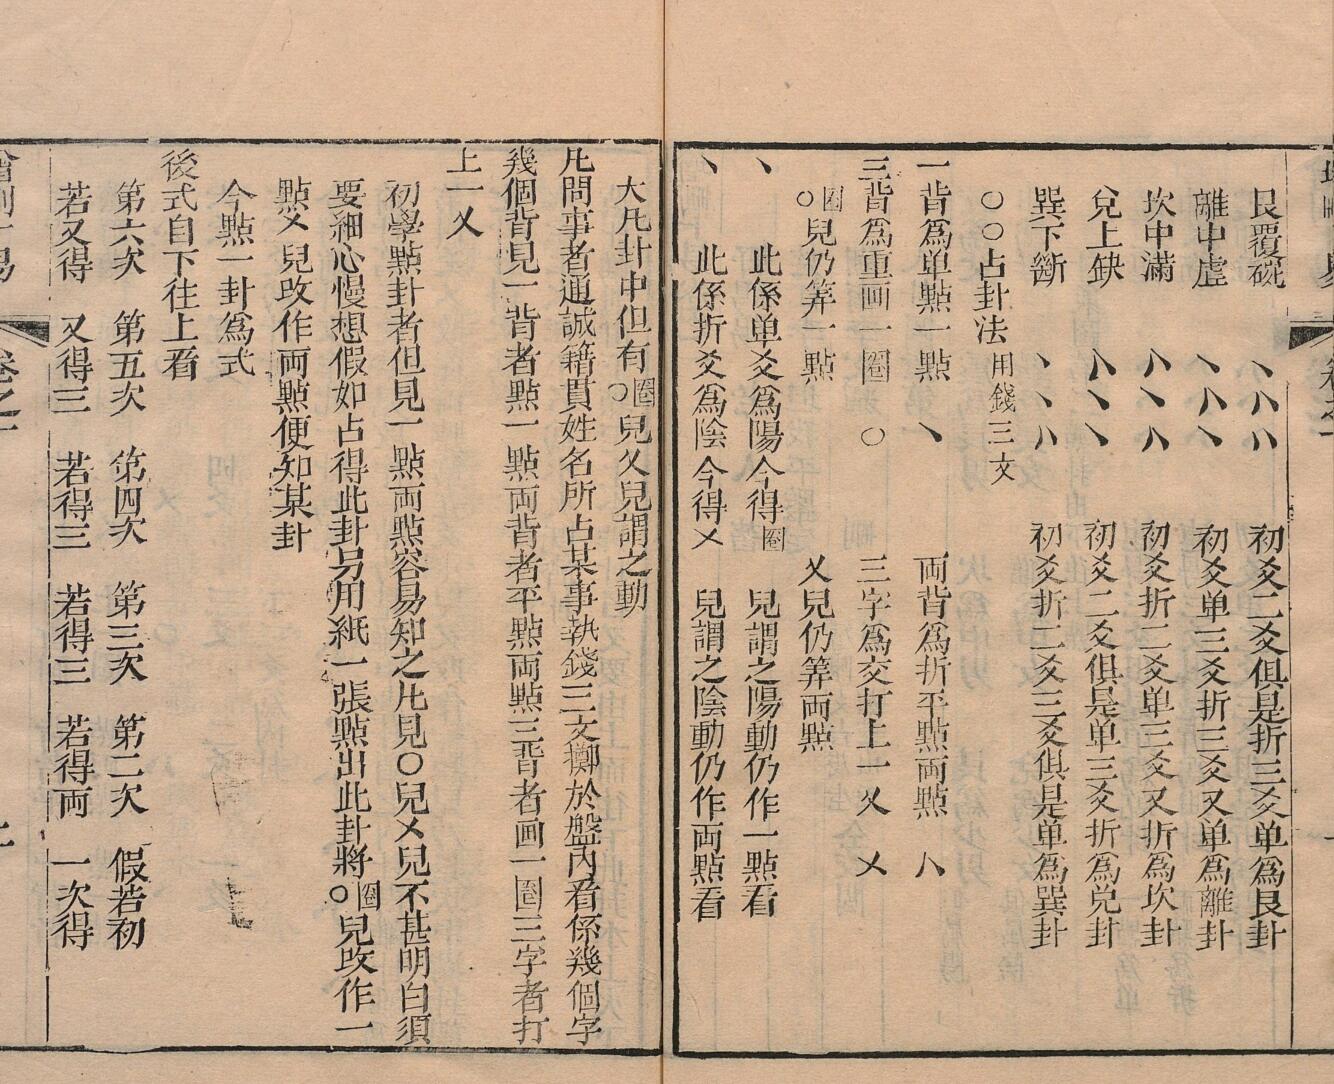 艮覆碗 丶 八 八 初爻二爻俱是折三爻单為艮卦
離中虛 丶 八 丶 初爻单二爻折三爻又单為離卦
坎中滿 八 丶 八 初爻折二爻单三爻又折為坎卦
兌上缺 八 丶 丶 初爻二爻俱是单三爻折為兌卦
巽下斷 丶 丶 八 初爻折二爻三爻俱是单為巽卦
○○占卦法 用錢三文
一背為单點一點 丶 両背為折平點両點 八
三背為重画一圈 ○ 三字為交打上一㐅 㐅
○圈兒仍筭一點 㐅兒仍筭両點
丶 此係单爻為陽今得圈 兒謂之陽動仍作一點看
丶 此係折爻為陰今得㐅 兒謂之陰動仍作両點看
大凡卦中但有○圈兒㐅兒謂之動
凡問事者通誠籍貫姓名所占某事執錢三文擲於盤內看係幾個字
幾個背見一背者點一點両背者平點両點三背者画一圈三字者打
上一㐅
初學點卦者但見一點両點容易知之凡見○兒㐅兒不甚明白須
要細心慢想假如占得此卦另用紙一張點出此卦將○圈兒改作一
點㐅兒改作両點便知某卦
今點一卦為式
後式自下往上看
第六次 第五次 第四次 第三次 第二次 假若初
若又得 又得三 若得三 若得三 若得両 一次得
增刪卜易 卷之一